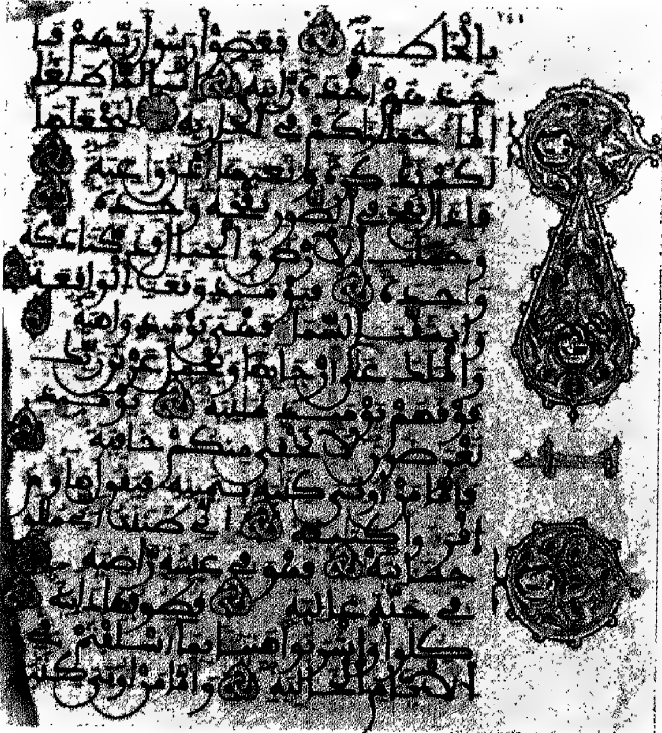 ٢٤١
بالخاطية فعصوا رسول ربهم فأ
خذهم أخذة رابية إنا لما طغا
الما حملنكم في الجارية لنجعلها
لكم تذكرة وتعيها أذن وعية
فإذا نفخ في الصور نفخة وحدة
وحملت الأرض والجبال فدكتا دكة
وحدة فيومئذ وقعت الواقعة
وانشقت السما فهي يومئذ واهية
والملك على أرجائها ويحمل عرش ربك
فوقهم يومئذ ثمنية يومئذ
تعرضون لا تخفى منكم خافية
فأما من أوتي كتبه بيمينه فيقول هاؤم
اقرءوا كتبيه إني ظننت أني ملق
حسابيه فهو في عيشة راضية
في جنة عالية قطوفها دانية
كلوا واشربوا هنيئا بما أسلفتم في
الأيام الخالية وأما من أوتي كتبه